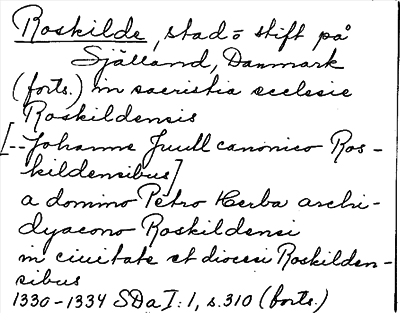 Roskilde, stad o stift på
Själland, Danmark
(forts.) in sacristia ecclesie
Roskildensis
[-- Johanne Juull canonico Ros-
kildensibus]
a domino Petro Herba archi-
dyacono Roskildensi
in ciuitate et diocesi Roskilden-
sibus
1330-1334 SDa I:1, s.310 (forts.)